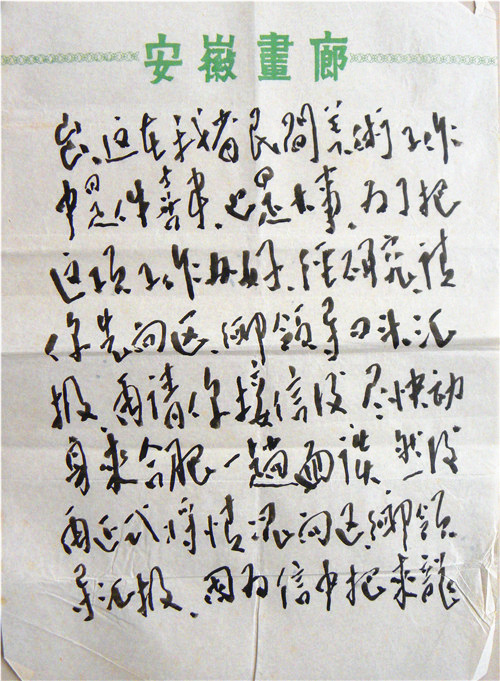 安徽畫廊
展、这在我省民間美術工作
中是件喜事、也是大事、为了把
这項工作办好、经研究、请
你先向区、鄉領导口头汇
报、再请你接信后尽快动
身来合肥一趟面谈、然后
再正式将情况向区、鄉領
导汇报、因为信中把来龍